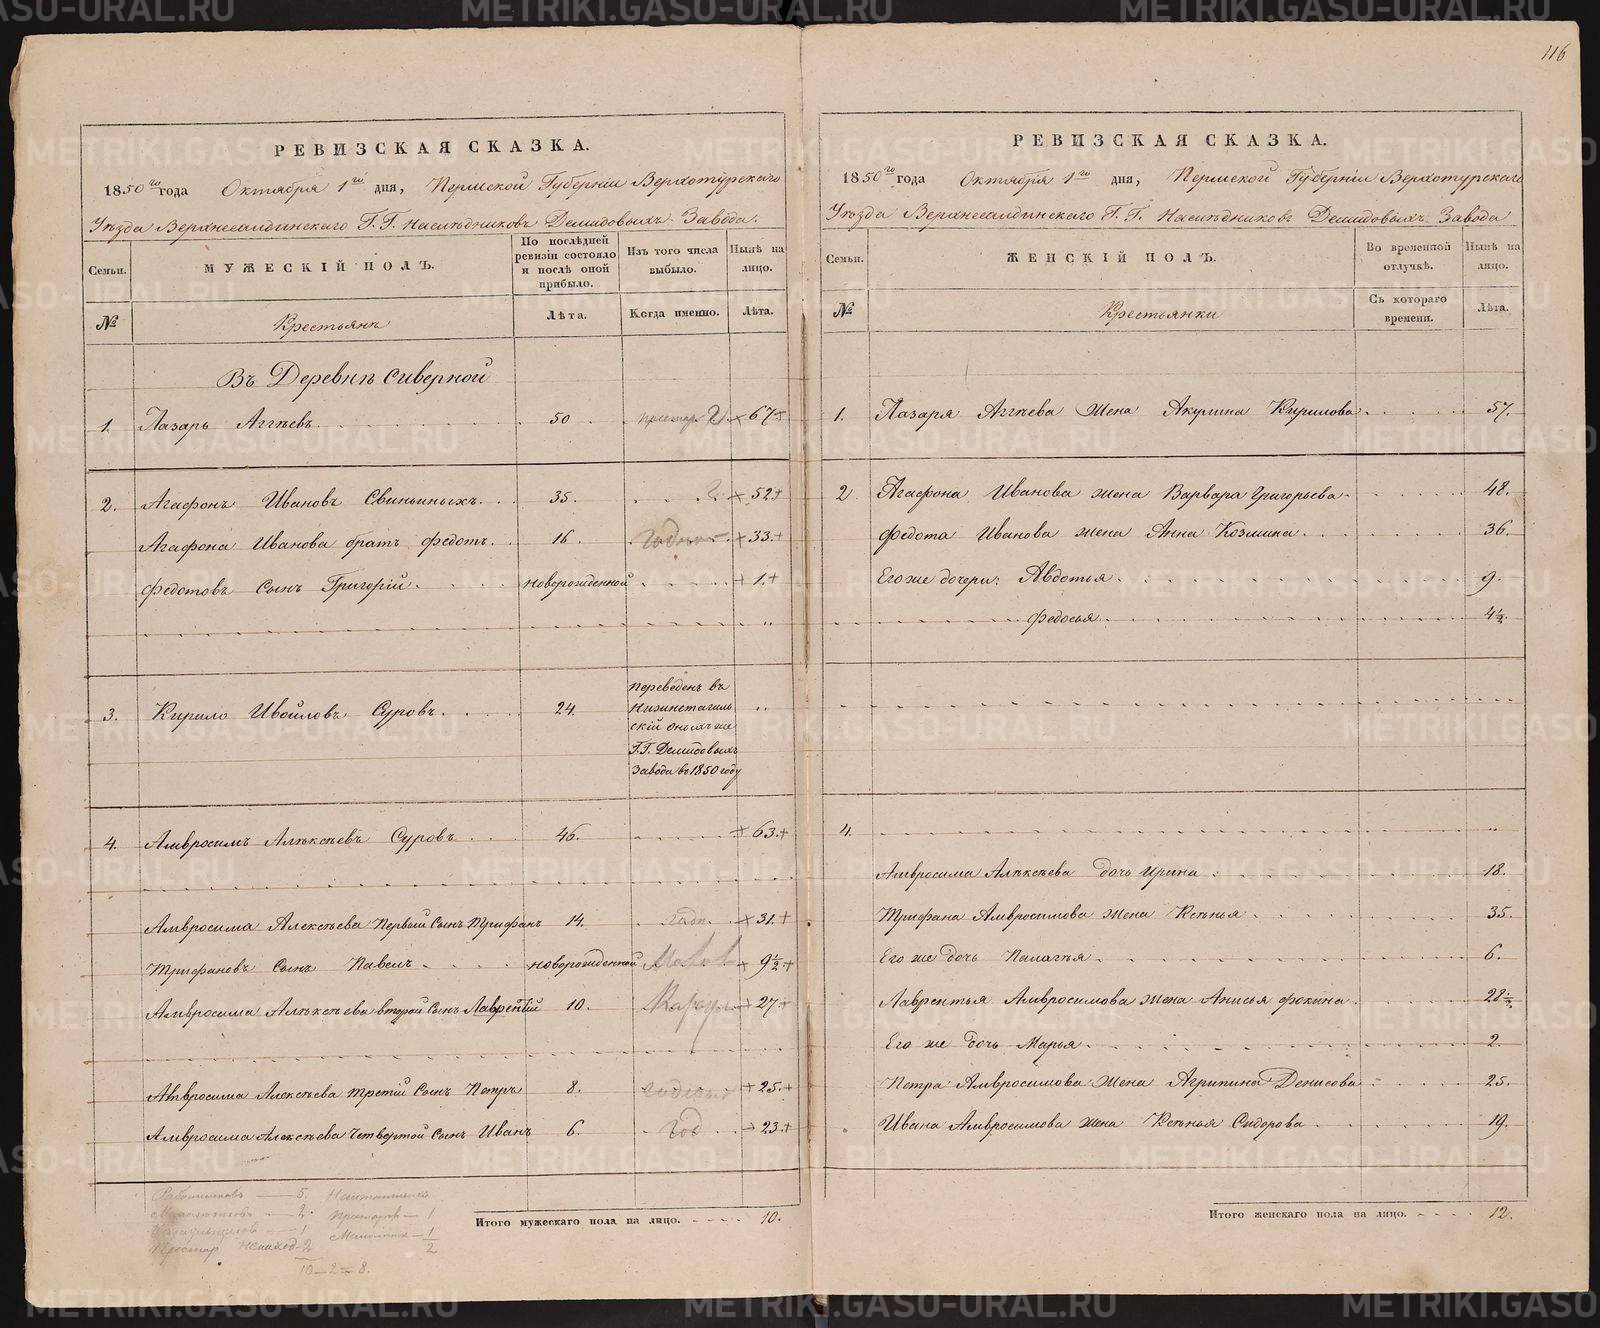 116
РЕВИЗСКАЯ СКАЗКА.
1850го года Октября 1го дня, Пермской Губернiи Верхотурскаго
Уѣзда Верхнесалдинскаго Г.Г. Наслѣдниковъ Демидовыхъ Завода.
Семьи. МУЖЕСКIЙ ПОЛЪ. По послѣдней ревизiи состояло и послѣ оной прибыло. Изъ того числа выбыло. Нынѣ на лицо.
№ Крестьянъ Лѣта. Когда именно. Лѣта.
Въ Деревнѣ Сиверной
1. Лазарь Аггѣевъ 50 67
2. Агафонъ Ивановъ Свиньиныхъ 35. 52
Агафона Иванова братъ Федотъ 16. 33.
Федотовъ сынъ Григорiй новорожденной 1.
3. Кирило Ивойловъ Суровъ 24. переведенъ въ
Нижнетагиль
скiй оныхъ же
Г.Г. Демидовыхъ
Завода въ 1850 году
4. Амвросимъ Алексѣевъ Суровъ 46. 63.
Амвросима Алексѣева Первый Сынъ Трифанъ 14. 31.
Трифановъ Сынъ Павелъ новорожденной 9 1/2
Амвросима Алексѣева второй Сынъ Лаврентiй 10. 27.
Амвросима Алексѣева третiй Сынъ Петръ 8. годной 25.
Амвросима Алексѣева Четвертой Сынъ Иванъ 6. Год 23.
Итого мужескаго пола на лицо. 10.
10-2=8.
РЕВИЗСКАЯ СКАЗКА.
1850го года Октября 1го дня, Пермской Губернiи Верхотурскаго
Уѣзда Верхнесалдинскаго Г.Г. Наслѣдниковъ Демидовыхъ Завода
Семьи. ЖЕНСКIЙ ПОЛЪ. Во временной отлучкѣ. Нынѣ на лицо.
№ Крестьянки Съ котораго времени. Лѣта.
1. Лазаря Аггѣева Жена Акулина Кирилова 57.
2 Агафона Иванова жена Варвара Григорьева 48.
Федота Иванова жена Анна Козмина 36.
Его же дочери: Авдотья 9.
Федосья 4 1/2.
4.
Амвросима Алексѣева дочь Ирина 18.
Трифана Амвросимова жена Ксѣнья 35.
Его же дочь Палагѣя 6.
Лаврентья Амвросимова жена Анисья Фокина 28 1/2
Его же дочь Марья 2.
Петра Амвросимова Жена Агрипина Денисова 25.
Ивана Амвросимова жена Ксѣнья Сидорова 19.
Итого женскаго пола на лицо. 12.
METRIKI.GASO-URAL.RU